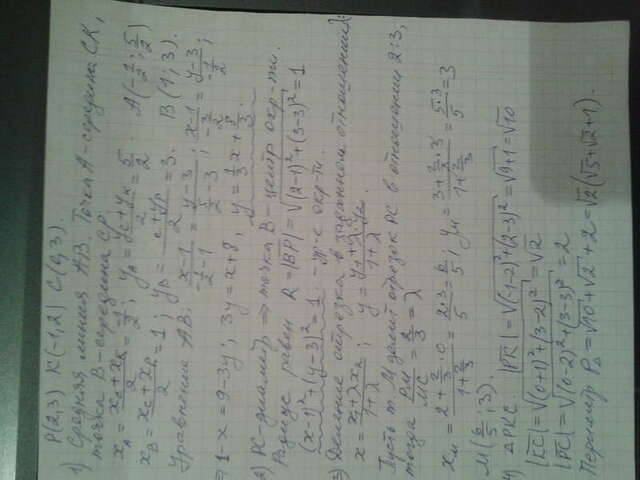 P(2,3) K(-1,2) C(0,3).
1) Средняя линия AB. Точка A - середина CK,
точка B - середина CP.
x_A = (x_C + x_K)/2 = -1/2 ; y_A = (y_C + y_K)/2 = 5/2 . A(-1/2 ; 5/2)
x_B = (x_C + x_P)/2 = 1 ; y_B = (y_C + y_P)/2 = 3. B(1 ; 3).
Уравнение AB: (x-1)/(-1/2 - 1) = (y-3)/(5/2 - 3) ; (x-1)/(-3/2) = (y-3)/(-1/2) ;
⇒ 1-x = 9-3y ; 3y = x+8, y = 1/3 x + 8/3.
2) PC - диаметр ⇒ точка B - центр окр-ти.
Радиус равен R = |BP| = √((2-1)² + (3-3)²) = 1
(x-1)² + (y-3)² = 1 - ур-е окр-ти.
3) Деление отрезка в заданном отношении λ:
x = (x₁ + λx₂)/(1+λ) ; y = (y₁ + λy₂)/(1+λ)
Пусть т. M делит отрезок PC в отношении 2:3,
тогда PM/MC = 2/3 = λ
x_M = (2 + 2/3 · 0)/(1 + 2/3) = 2·3/5 = 6/5 ; y_M = (3 + 2/3 · 3)/(1 + 2/3) = 5·3/5 = 3
M(6/5 ; 3).
4) ΔPKC. |PK| = √((-1-2)² + (2-3)²) = √(9+1) = √10
|KC| = √((0+1)² + (3-2)²) = √2
|PC| = √((0-2)² + (3-3)²) = 2
Периметр P_Δ = √10 + √2 + 2 = √2(√5 + √2 + 1).